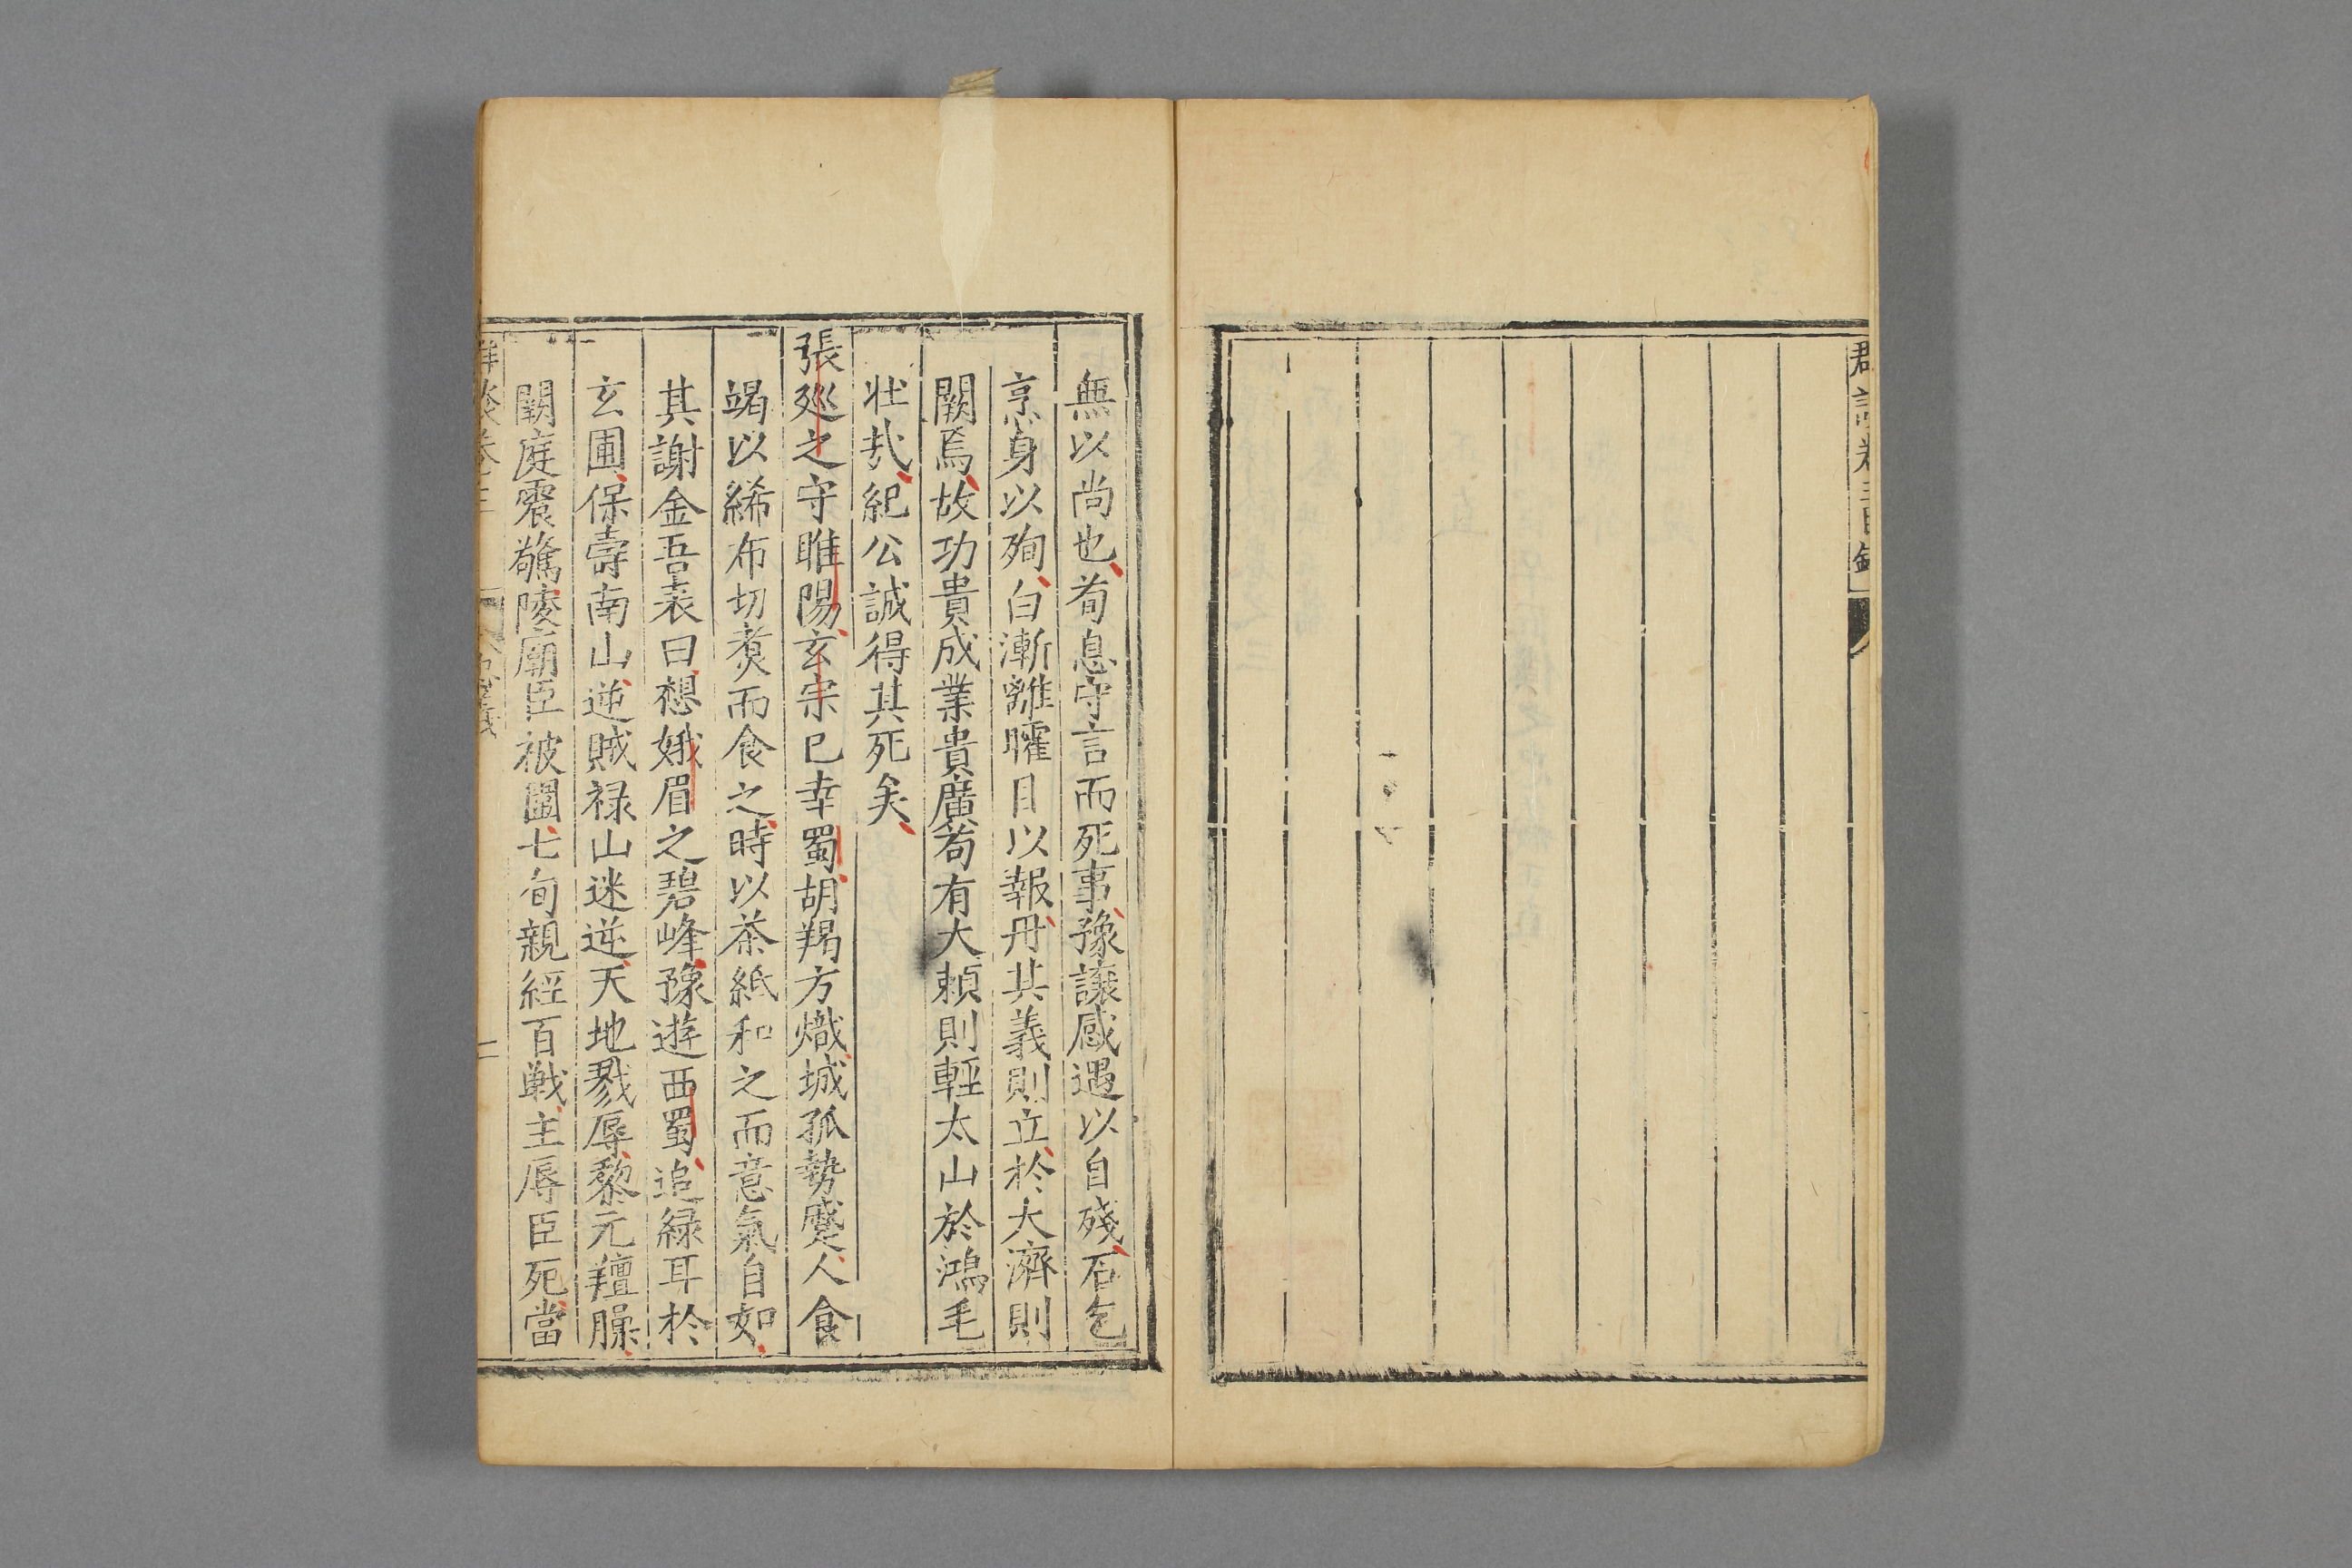 無以尚也荀息守言而死事豫讓感遇以自殘石乞
烹身以殉白漸離矐目以報丹其義則立於大濟則
闕焉故功貴成業貴廣苟有大賴則輕太山於鴻毛
壯哉紀公誠得其死矣
張廵之守睢陽玄宗已幸蜀胡羯方熾城孤勢蹙人食
竭以絺布切煑而食之時以茶紙和之而意氣自如
其謝金吾表曰想娥眉之碧峰豫遊西蜀追緑耳於
玄圃保壽南山逆賊禄山迷逆天地戮辱黎元羶臊
闕庭震驚陵廟臣被圍七旬親經百戦主辱臣死當